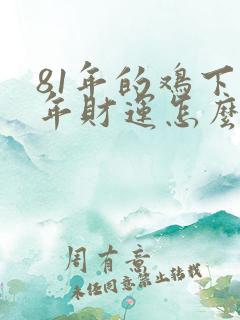 81年的鸡下
年财运怎么
周有意
未经同意禁止转载